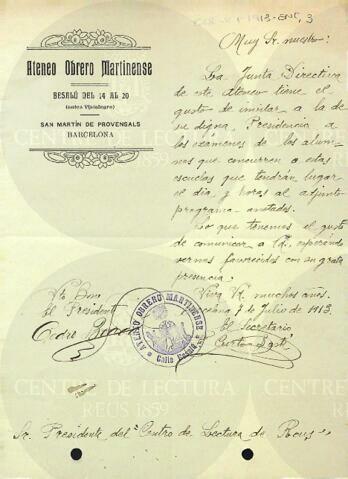 1913-ENT, 3
Ateneo Obrero Martinense
BESALÚ DEL 14 AL 20
(antes Vistalegre)
SAN MARTÍN DE PROVENSALS
BARCELONA
Muy Sr. nuestro:
La Junta Directiva
de este Ateneo tiene el
gusto de invitar a la de
su digna Presidencia a
los exámenes de los alum-
nos que concurren a estas
escuelas que tendrán lugar
el día y horas al adjunto
programa anotados.
Lo que tenemos el gusto
de comunicar a V., esperando
vernos favorecidos con su grata
presencia.
Viva V. muchos años.
Vto Bno
El President
ATENEO OBRERO MARTINENSE
Calle Besalú
7 de Julio de 1913.
El Secretario
CENTRE DE LECTURA
REUS 1859
CENTRE DE LECTURA
REUS 1859
Sr. Presidente del "Centro de Lectura de Reus"